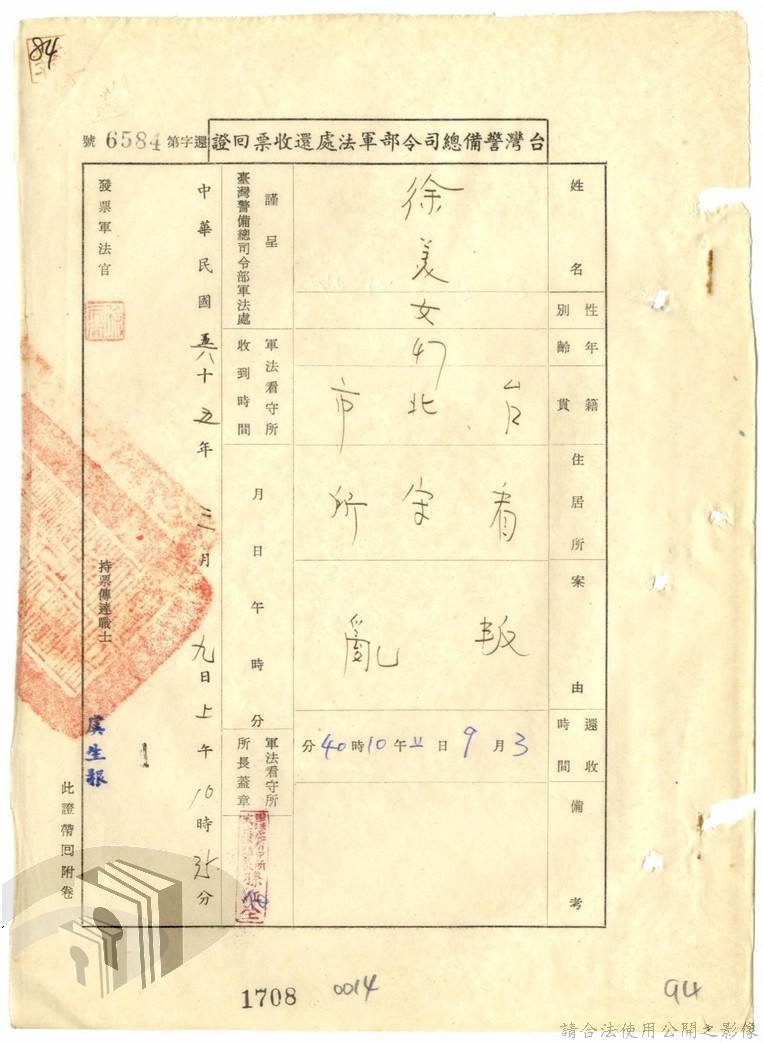 84
台灣警備總司令部軍法處還收票回證
還字第6584號
姓名
徐美
性別
女
年齡
47
籍貫
台北市
住居所
看守所
案由
叛亂
還收時間
3月9日上午10時40分
備考
謹呈
臺灣警備總司令部軍法處
軍法看守所收到時間
月日午時分
軍法看守所所長蓋章
中華民國五十五年三月九日上午10時35分
發票軍法官
持票傳達戰士
虞生報
此證帶回附卷
1708
0014
94
請合法使用公開之影像